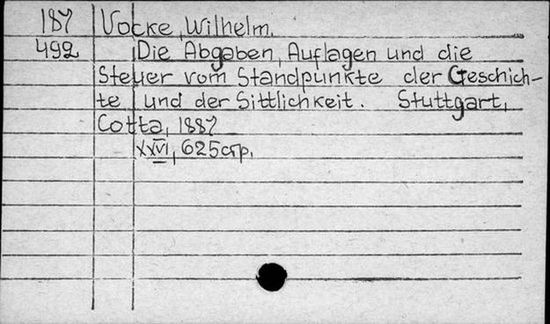 187 Vocke, Wilhelm.
492 Die Abgaben, Auflagen und die
Steuer vom Standpunkte der Geschich-
te und der Sittlichkeit. Stuttgart,
Cotta, 1887
XXVI, 625стр.